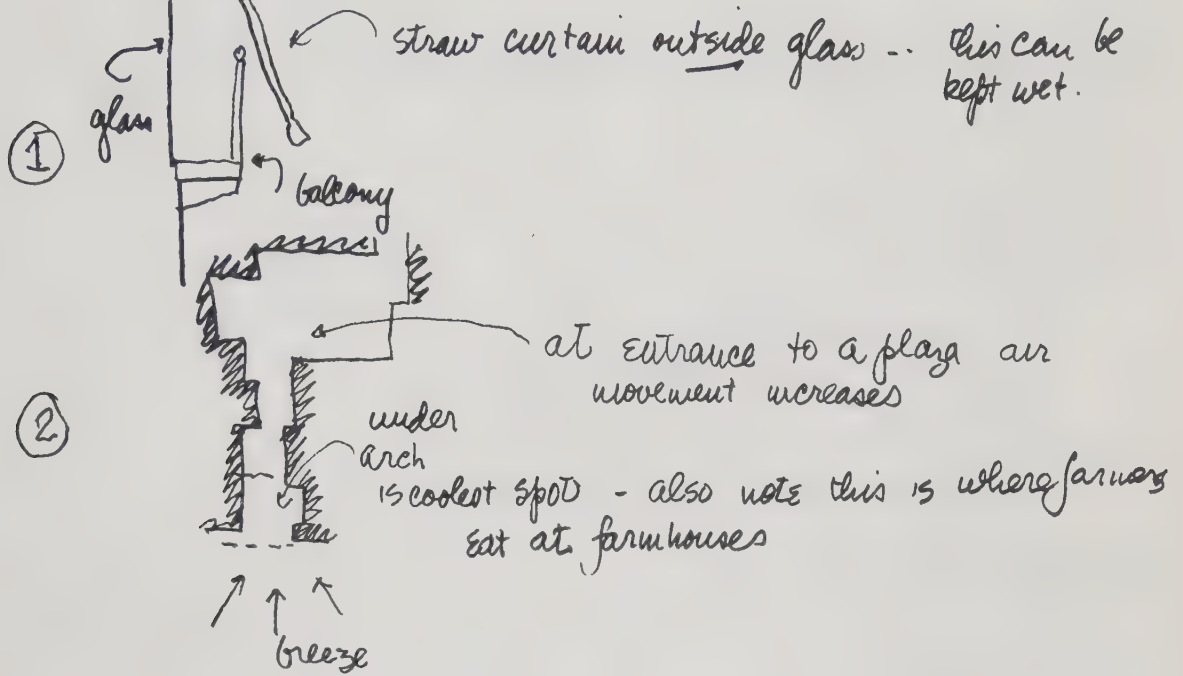 straw curtain outside glass -- this can be
kept wet.
glass
1
balcony
at entrance to a plaza air
movement increases
2
under
arch
is coolest spot - also note this is where farmers
eat at farmhouses
breeze